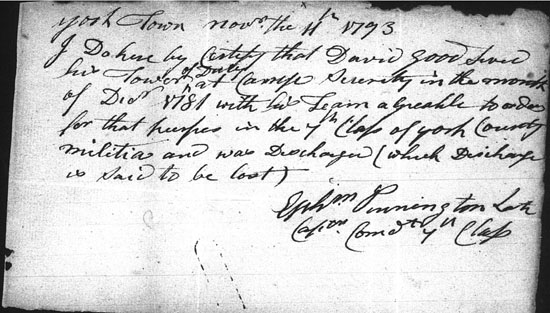 york Town novr. the 11th 1793
I Do here by Certify that David good Served
his Tower of Duty at Camp Security in the month
of Decr 1781 with his Team agreable to order
for that purpes in the 7th Class of york County
militia and was Discharged (which Discharge
is said to be lost)
Ephm Pinnington Late
Capn Comdt 7th Class